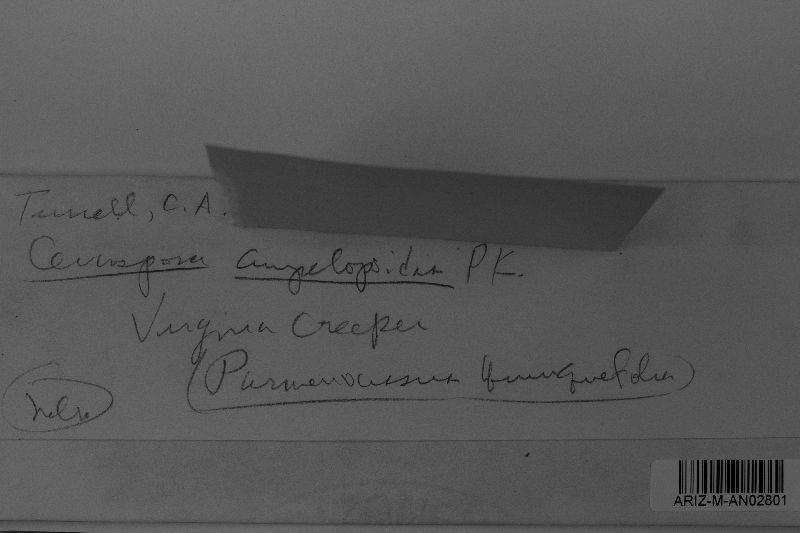 Terrell, C. A.
Cercospora ampelopsidis PK.
Virginia Creeper
(Parthenocissus quinquefolia)
ARIZ-M-AN02801